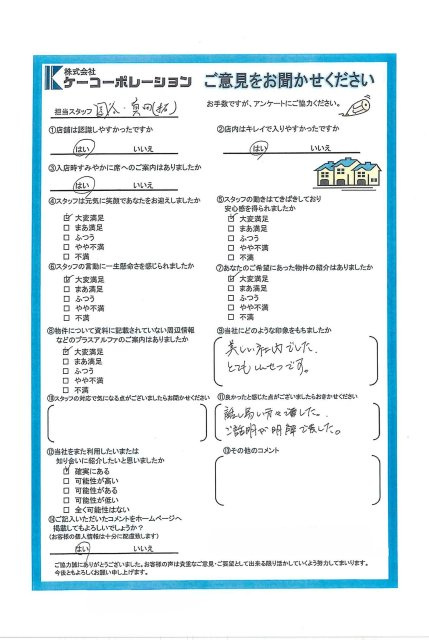 株式会社
ケーコーポレーション
ご意見をお聞かせください
お手数ですが、アンケートにご協力ください。
担当スタッフ
①店舗は認識しやすかったですか
はい いいえ
②店内はキレイで入りやすかったですか
はい いいえ
③入店時すみやかに席へのご案内はありましたか
はい いいえ
④スタッフは元気に笑顔であなたをお迎えしましたか
☑ 大変満足
□ まあ満足
□ ふつう
□ やや不満
□ 不満
⑤スタッフの動きはてきぱきしており
安心感を得られましたか
☑ 大変満足
□ まあ満足
□ ふつう
□ やや不満
□ 不満
⑥スタッフの言動に一生懸命さを感じられましたか
☑ 大変満足
□ まあ満足
□ ふつう
□ やや不満
□ 不満
⑦あなたのご希望にあった物件の紹介はありましたか
☑ 大変満足
□ まあ満足
□ ふつう
□ やや不満
□ 不満
⑧物件について資料に記載されていない周辺情報
などのプラスアルファのご案内はありましたか
☑ 大変満足
□ まあ満足
□ ふつう
□ やや不満
□ 不満
⑨当社にどのような印象をもちましたか
美しい社内でした。
とても しんせつです。
⑩スタッフの対応で気になる点がございましたらお聞かせください
⑪良かったと感じた点がございましたらおきかせください
話し易い方々でした。
ご説明が明解でした。
⑫当社をまた利用したいまたは
知り合いに紹介したいと思いましたか
☑ 確実にある
□ 可能性が高い
□ 可能性がある
□ 可能性が低い
□ 全く可能性はない
⑬その他のコメント
⑭ご記入いただいたコメントをホームページへ
掲載してもよろしいでしょうか？
(お客様の個人情報は十分に配慮致します)
はい いいえ
ご協力誠にありがとうございました。お客様の声は貴重なご意見・ご要望として出来る限り活かしていくよう努力してまいります。
今後ともよろしくお願い申し上げます。